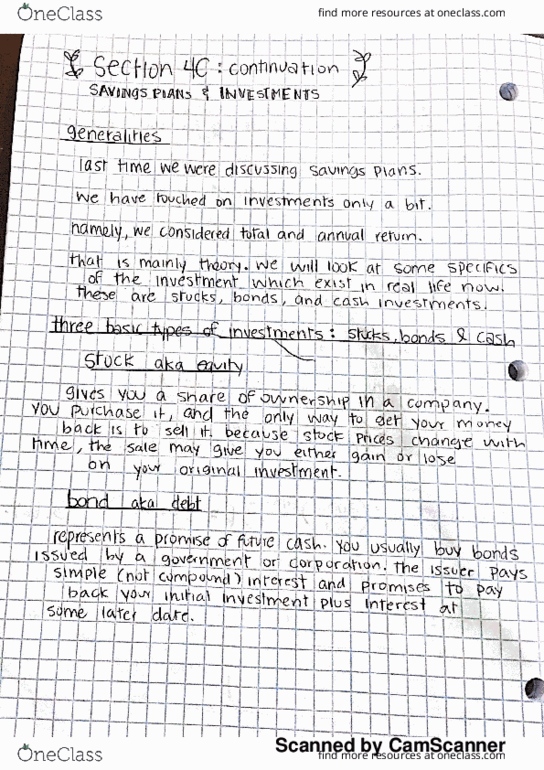 OneClass
find more resources at oneclass.com
Section 4C: continuation
SAVINGS PLANS & INVESTMENTS
generalities
last time we were discussing savings plans.
we have touched on investments only a bit.
namely, we considered total and annual return.
that is mainly theory. we will look at some specifics
of the investment which exist in real life now.
these are stocks, bonds, and cash investments.
three basic types of investments: stocks, bonds & cash
stock aka equity
gives you a share of ownership in a company.
you purchase it, and the only way to get your money
back is to sell it. because stock prices change with
time, the sale may give you either gain or lose
on your original investment.
bond aka debt
represents a promise of future cash. you usually buy bonds
issued by a government or corporation. the issuer pays
simple (not compound) interest and promises to pay
back your initial investment plus interest at
some later date.
Scanned by CamScanner
OneClass
find more resources at oneclass.com